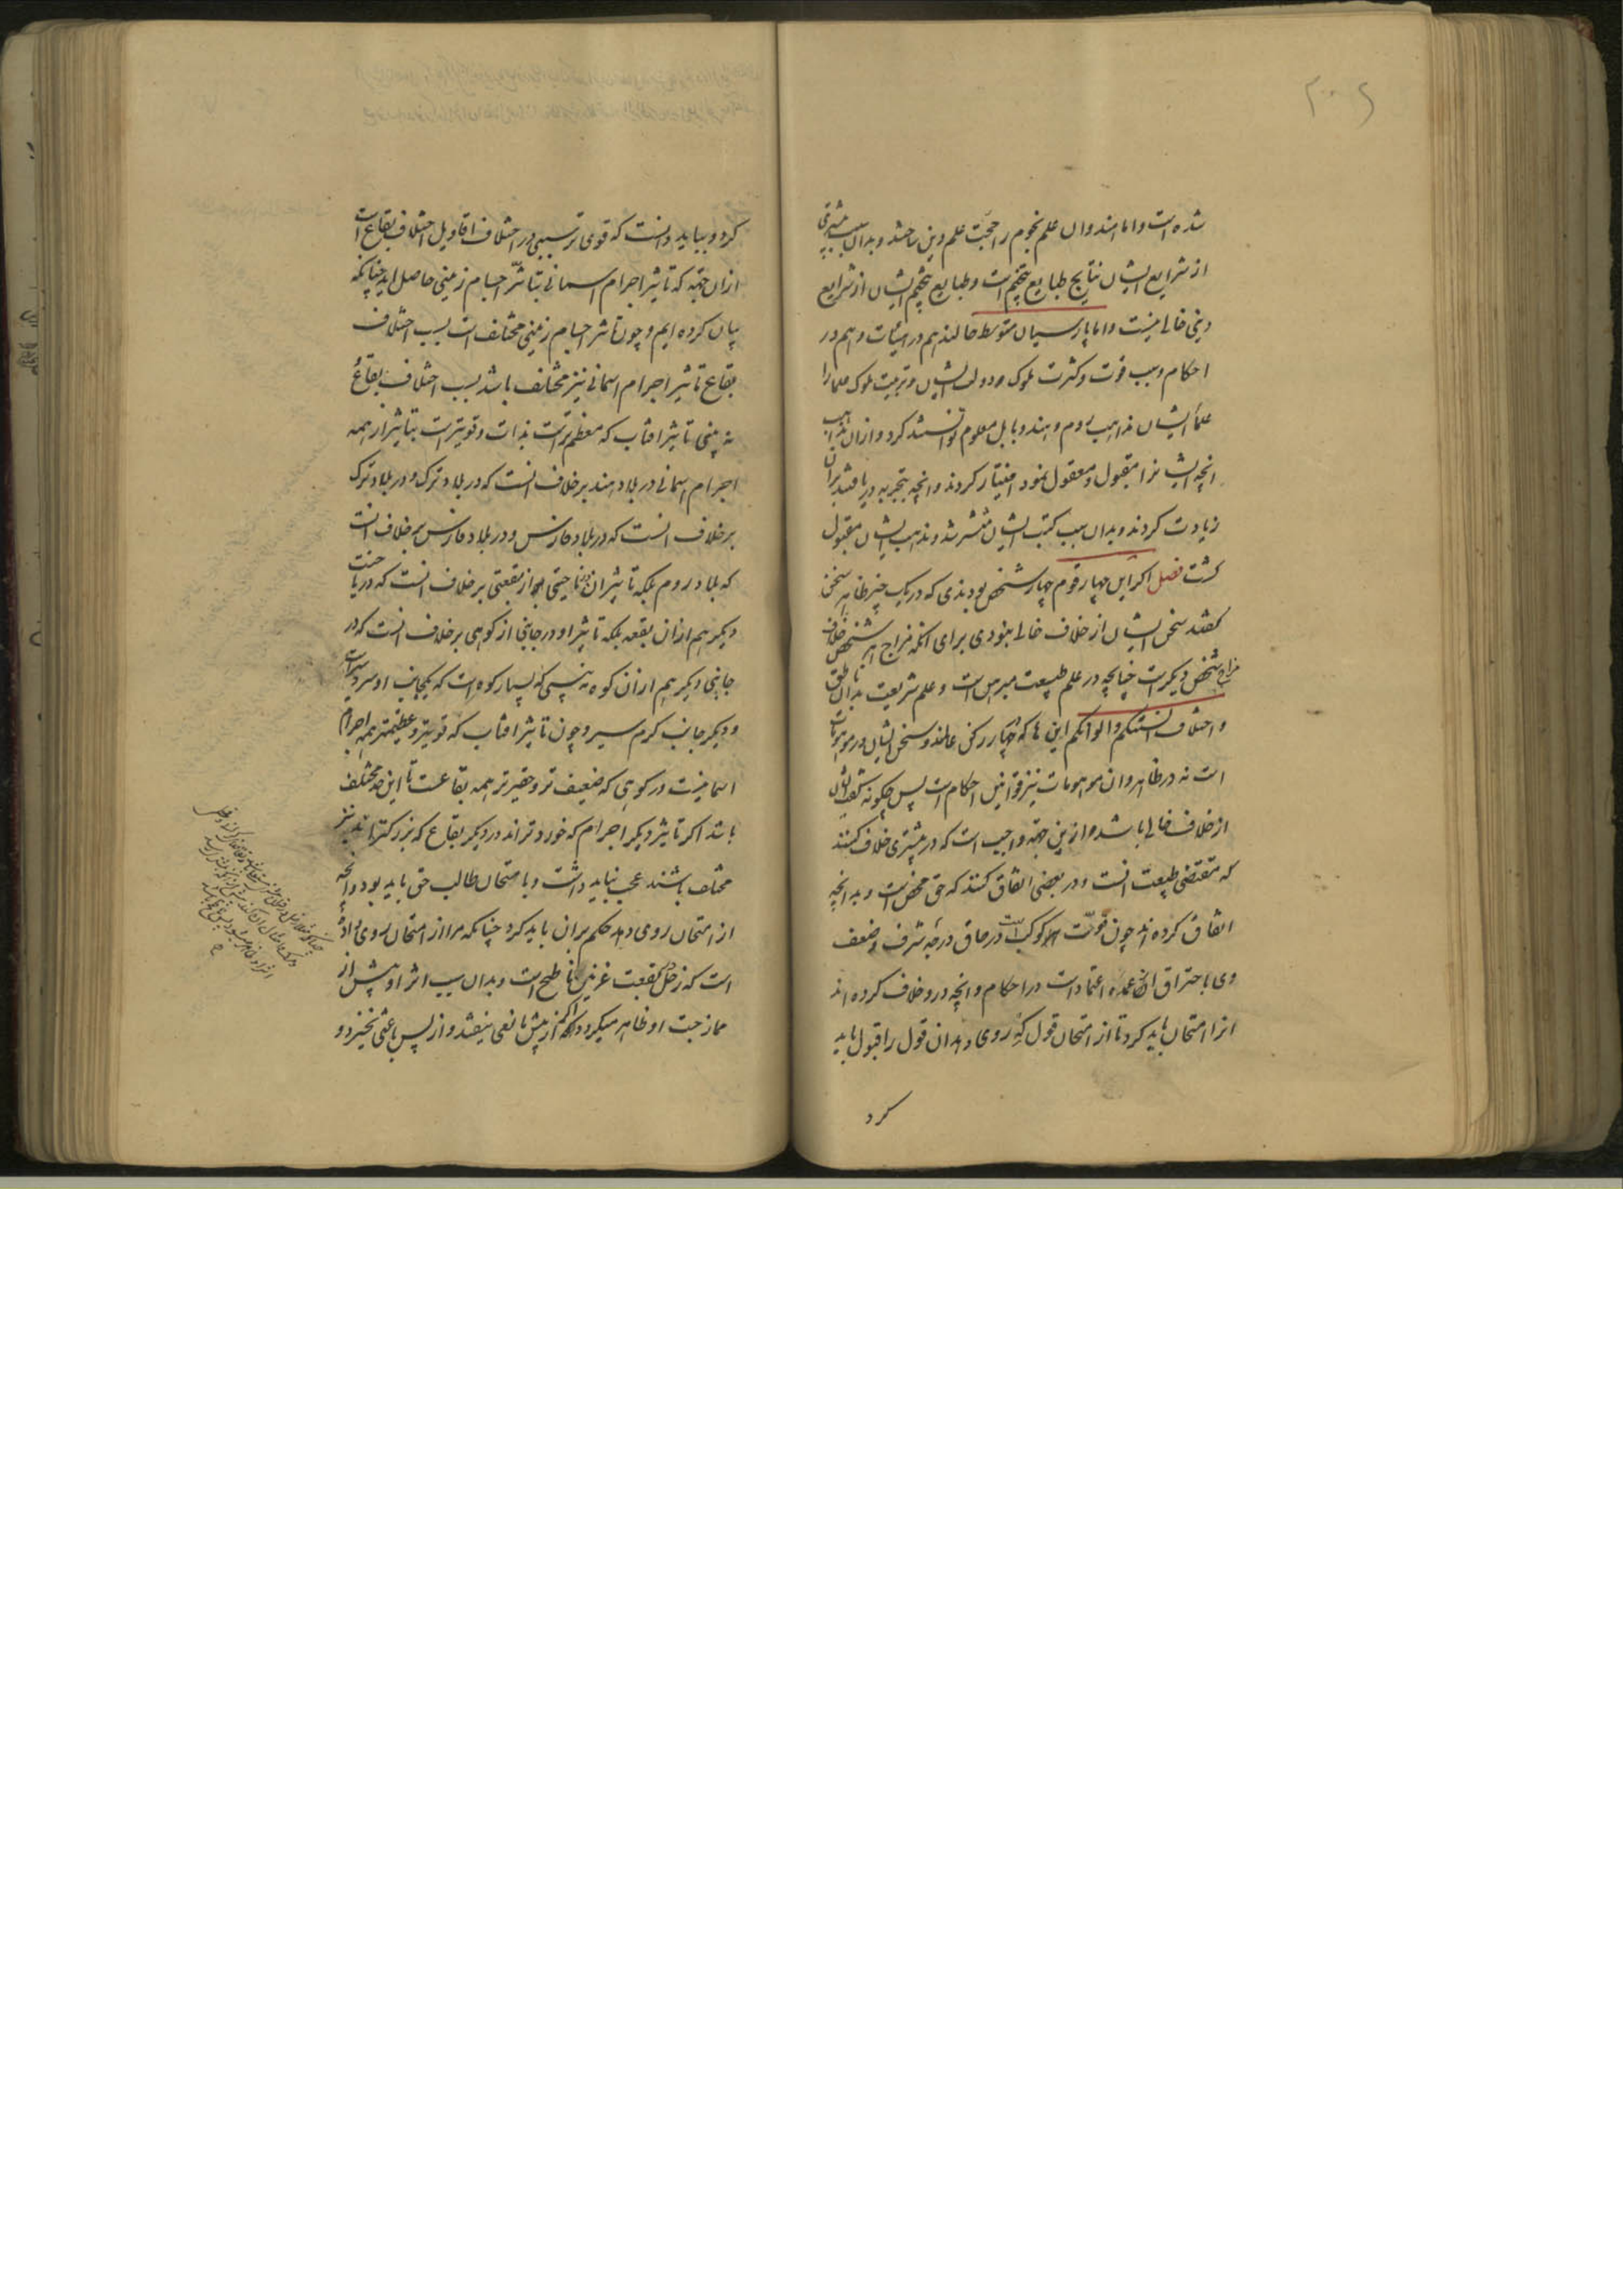 شده است و اما هندوان علم نجوم را حجت علم دین ساختند و بدان سبب بیشتری
از شرایع ایشان نتایج طبایع تنجیم است و طبایع تنجیم ایشان از شرایع
دینی خالی نیست و اما پارسیان متوسط حالند هم در هیئات و هم در
احکام و بسبب قوت و کثرت ملوک و دولت ایشان و تربیت ملوک علما را
علماء ایشان مذاهب روم و هند و بابل معلوم توانستند کرد و از ان مذاهب
انچه ایشانرا مقبول و معقول نمود اختیار کردند و انچه بتجربه دریافتند بران
زیادت کردند و بدان سبب کتب ایشان منتشر شد و مذهب ایشان مقبول
کشت فصل اکر این چهار قوم چهار شخص بودندی که در یک چیز ظاهر سخن
کفتند سخن ایشان از خلاف خالی نبودی برای انکه مزاج هر شخص خلاف
مزاج شخص دیکرست چنانچه در علم طبیعت مبرهن است و علم شریعت بدان ناطق
و اختلاف السنتکم و الوانکم این ها که چهار رکن عالمند و سخن ایشان در موهومات
است نه در ظاهر و ان موهومات نیز قوانین احکام است پس چکونه سخن ایشان
از خلاف خالی باشد و ازین جهة واجب است که در بیشتری خلاف کنند
که مقتضی طبیعت انست و در بعضی اتفاق کنند که حق محض است و بد انچه
اتفاق کرده اند چون قوت کوکبست در حاق درجه شرف و ضعف
وی باحتراق ان عمده اعتمادست در احکام و انچه درو خلاف کرده اند
انرا امتحان باید کرد تا از امتحان قول که روی دهد ان قول را قبول باید
کرد
کرد و بباید دانست که قوی تر سببی در اختلاف اقاویل اختلاف بقاع است
از ان جهة که تاثیر اجرام اسمانی بتاثر اجسام زمینی حاصل اید چنانکه
بیان کرده ایم و چون تاثر اجسام زمینی مختلف است بسبب اختلاف
بقاع تاثیر اجرام اسمانی نیز مختلف باشد بسبب اختلاف بقاع
نه بینی تاثیر افتاب که معظم ترست بذات و قویترست بتاثیر از همه
اجرام اسمانی در بلاد هند برخلاف انست که در بلاد ترک و در بلاد ترک
برخلاف انست که در بلاد فارس و در بلاد فارس برخلاف انست
که بلاد روم بلکه تاثیر ان در ناحیتی از بقعتی برخلاف انست که در ناحیت
دیکر هم از ان بقعه بلکه تاثیر او در جانبی از کوهی برخلاف انست که در
جانبی دیکر هم از ان کوه نه بینی که بسیار کوه است که یکجانب او سردسیرست
و دیکر جانب کرم سیر و چون تاثیر افتاب که قویتر و عظیمتر همه اجرام
اسمانیست در کوهی که ضعیف تر و حقیرتر همه بقاعست تا این حد مختلف
باشد اکر تاثیر دیکر اجرام که خوردتراند در دیکر بقاع که بزرکتراند نیز
مختلف باشند عجب نباید داشت و بامتحان طالب حق باید بود و انچه
از امتحان روی دهد حکم بران باید کرد چنانکه مرا از امتحان روی داده
است که زحل ببقعت غزنین ناطح است و بدان سبب اثر او پیش از
ممازجت او ظاهر میکردد اکر از پیش مانعی نیفتد و از پس باعثی نخیزد و